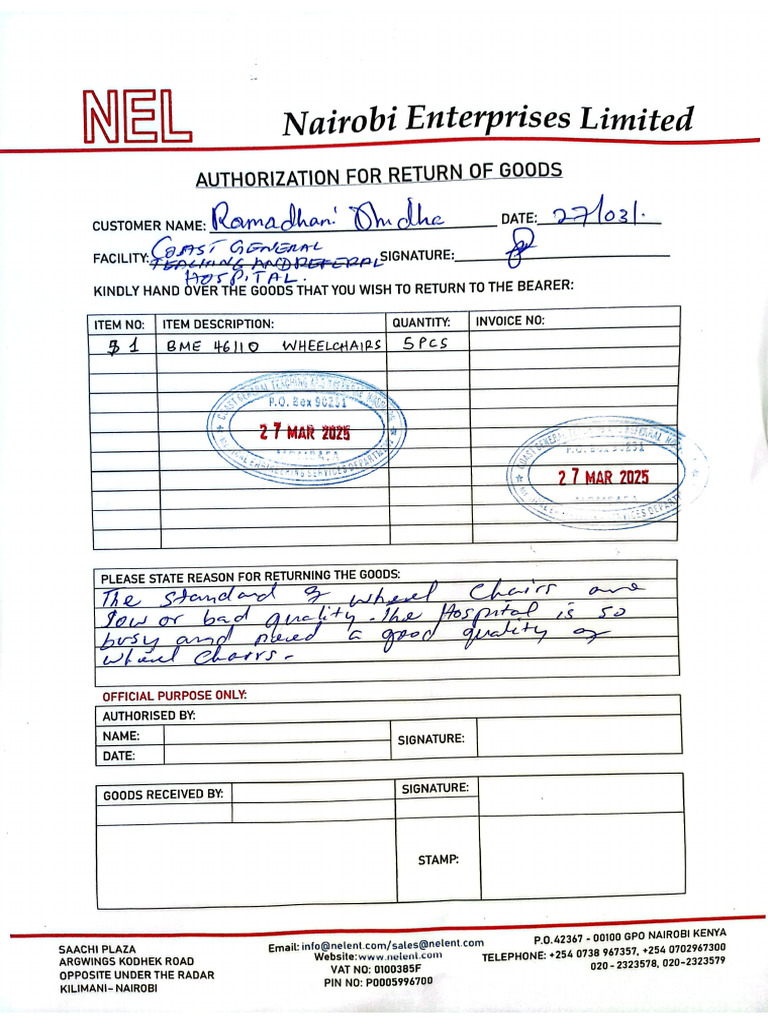 NEL Nairobi Enterprises Limited
AUTHORIZATION FOR RETURN OF GOODS
CUSTOMER NAME: Ramadhani Dhidha DATE: 27/03/.
FACILITY: COAST GENERAL SIGNATURE:
TEACHING AND REFERAL
HOSPITAL.
KINDLY HAND OVER THE GOODS THAT YOU WISH TO RETURN TO THE BEARER:
ITEM NO: ITEM DESCRIPTION: QUANTITY: INVOICE NO:
1 BME 46110 WHEELCHAIRS 5PCS
COAST GENERAL TEACHING AND REFERRAL HOSPITAL
P.O. Box 90231
27 MAR 2025
MOMBASA
MEDICAL ENGINEERING SERVICES DEPARTMENT
COAST GENERAL REFERRAL
P.O. Box 90231
27 MAR 2025
MOMBASA
SERVICES DEPARTMENT
PLEASE STATE REASON FOR RETURNING THE GOODS:
The standard of wheel chairs are
low or bad quality. The Hospital is so
busy and need a good quality of
wheel chairs.
OFFICIAL PURPOSE ONLY:
AUTHORISED BY:
NAME: SIGNATURE:
DATE:
GOODS RECEIVED BY: SIGNATURE:
STAMP:
SAACHI PLAZA
ARGWINGS KODHEK ROAD
OPPOSITE UNDER THE RADAR
KILIMANI- NAIROBI
Email: info@nelent.com/sales@nelent.com
Website:www.nelent.com
VAT NO: 0100385F
PIN NO: P0005996700
P.O.42367 - 00100 GPO NAIROBI KENYA
TELEPHONE: +254 0738 967357, +254 0702967300
020 - 2323578, 020-2323579